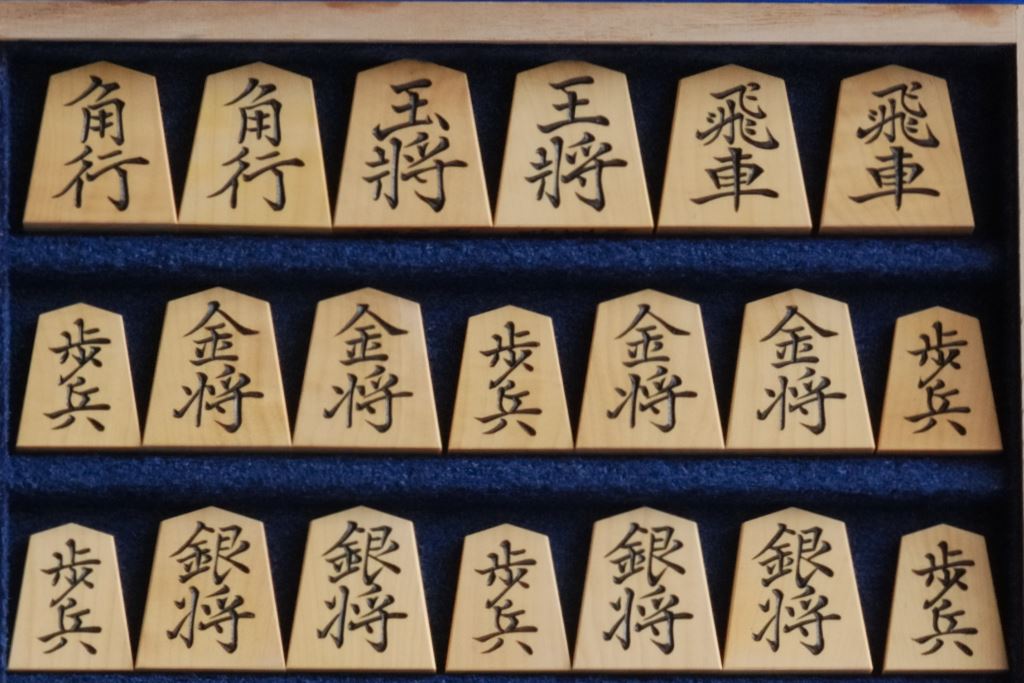 角行 角行 玉將 王將 飛車 飛車
歩兵 金将 金将 歩兵 金将 金将 歩兵
歩兵 銀将 銀将 歩兵 銀将 銀将 歩兵